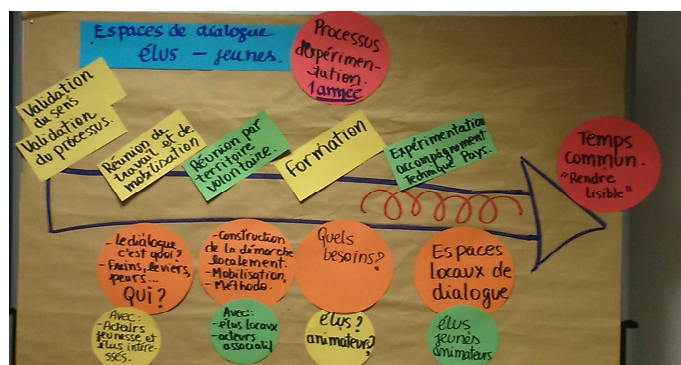 Espaces de dialogue
élus - jeunes.
Processus
d'expérimen-
tation.
1 année
Validation
du sens
Validation
du processus.
Réunion de
travail et de
mobilisation
Réunion par
territoire
volontaire.
Formation
Expérimentation
accompagnement
technique Pays.
Temps
commun.
"Rendre
lisible"
- le dialogue
c'est quoi?
- Freins, leviers,
peurs...
QUI?
- Construction
de la démarche
localement.
- Mobilisation,
- Méthodo.
Quels
besoins?
Espaces
locaux de
dialogue
Avec:
- Acteurs
jeunesse et
élus intéres-
sés.
Avec:
- élus locaux
- acteurs
associatif
élus?
animateurs?
élus
jeunes
animateurs